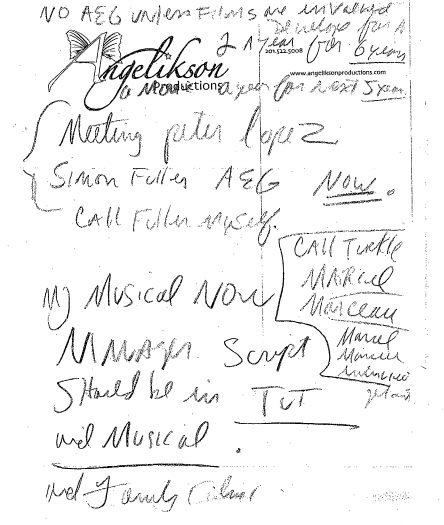 NO AEG unless Films are involved
Develop for A
2 A Year for 6 years
201.522.5008
Angelikson
Productions
www.angeliksonproductions.com
a year for next 5 year
Meeting peter lopez
Simon Fuller AEG NOW.
CALL Fuller myself.
CALL Turkle
MARCEL
Marceau
MJ Musical NOW
Marcel
Marceau
MManager Script
Should be in TUT
and Musical.
and Family